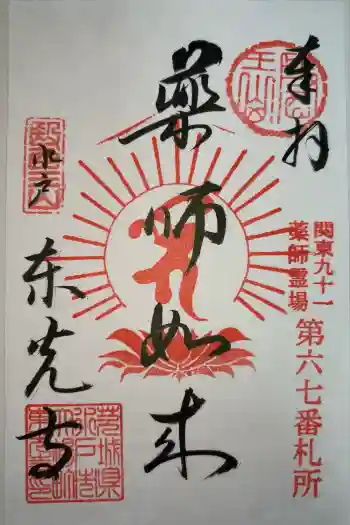 奉拝
関東九十一
薬師霊場
第六七番札所
薬師如来
水戸
東光寺